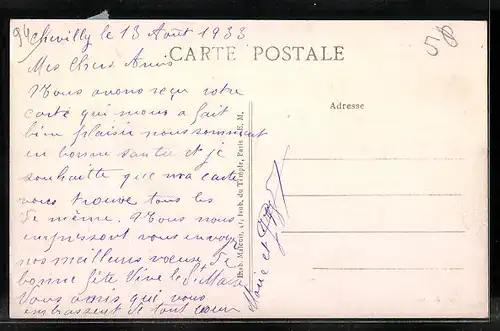 94
58
Chevilly le 13 Août 1933
CARTE POSTALE
Mes Chers Amis
Nous avons reçu votre
carte qui nous a fait
bien plaisir nous somment
en bonne santée et je
souhaitte que ma carte
vous trouve tous les
de même. Nous nous
empressont vous envoyer
nos meilleurs voeuse de
bonne fête Vive le St
Vous amis qui vous
embrassent de tout coeur
Adresse
Prod. Malcuit, 41, faub. du Temple, Paris E. M.
et